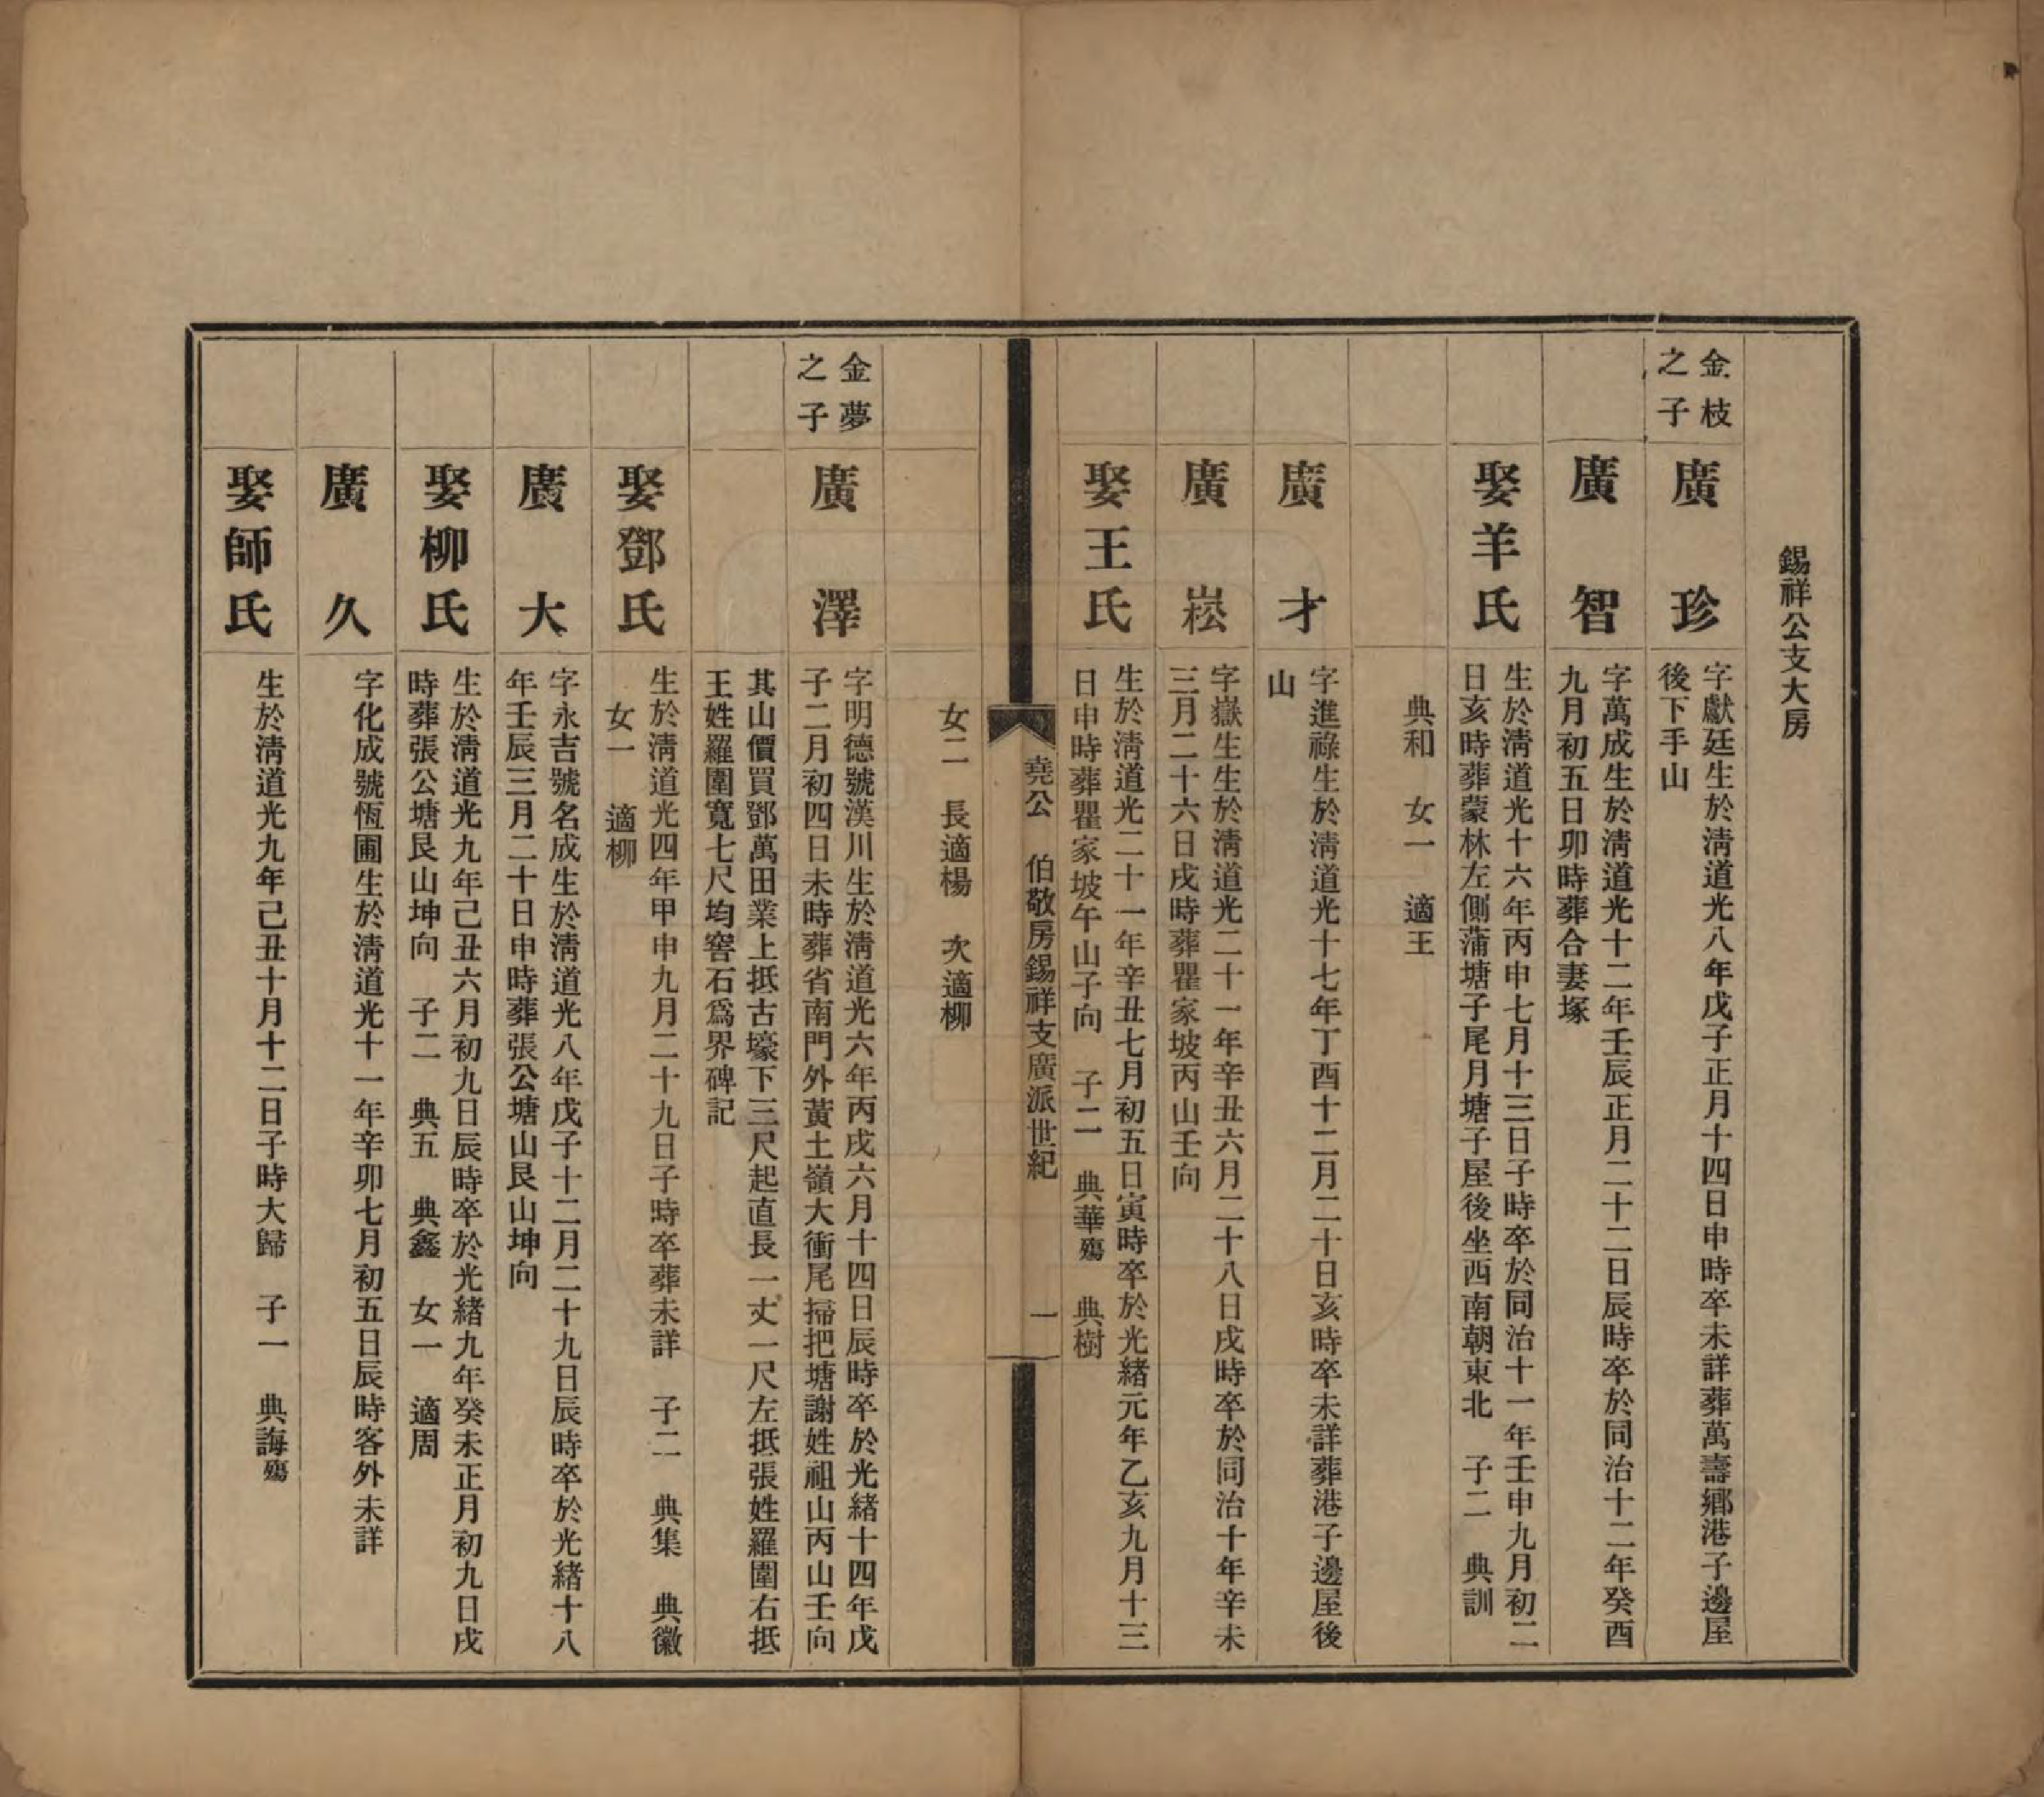 錫祥公支大房
金枝
之子
廣珍
字獻廷生於淸道光八年戊子正月十四日申時卒未詳葬萬壽鄉港子邊屋
後下手山
廣智
字萬成生於淸道光十二年壬辰正月二十二日辰時卒於同治十二年癸酉
九月初五日卯時葬合妻塚
娶羊氏
生於淸道光十六年丙申七月十三日子時卒於同治十一年壬申九月初二
日亥時葬蒙林左側蒲塘子尾月塘子屋後坐西南朝東北 子二 典訓
典和 女一 適王
廣才
字進祿生於淸道光十七年丁酉十二月二十日亥時卒未詳葬港子邊屋後
山
廣崧
字嶽生生於淸道光二十一年辛丑六月二十八日戌時卒於同治十年辛未
三月二十六日戌時葬瞿家坡丙山壬向
娶王氏
生於淸道光二十一年辛丑七月初五日寅時卒於光緖元年乙亥九月十三
日申時葬瞿家坡午山子向 子二 典華殤 典樹
堯公 伯敬房錫祥支廣派世紀 一
女二 長適楊 次適柳
金夢
之子
廣澤
字明德號漢川生於淸道光六年丙戌六月十四日辰時卒於光緖十四年戊
子二月初四日未時葬省南門外黃土嶺大衝尾掃把塘謝姓祖山丙山壬向
其山價買鄧萬田業上抵古壕下三尺起直長一丈一尺左抵張姓羅圍右抵
王姓羅圍寬七尺均窖石爲界碑記
娶鄧氏
生於淸道光四年甲申九月二十九日子時卒葬未詳 子二 典集 典徽
女一 適柳
廣大
字永吉號名成生於淸道光八年戊子十二月二十九日辰時卒於光緖十八
年壬辰三月二十日申時葬張公塘山艮山坤向
娶柳氏
生於淸道光九年己丑六月初九日辰時卒於光緖九年癸未正月初九日戌
時葬張公塘艮山坤向 子二 典五 典鑫 女一 適周
廣久
字化成號恆圃生於淸道光十一年辛卯七月初五日辰時客外未詳
娶師氏
生於淸道光九年己丑十月十二日子時大歸 子一 典誨殤